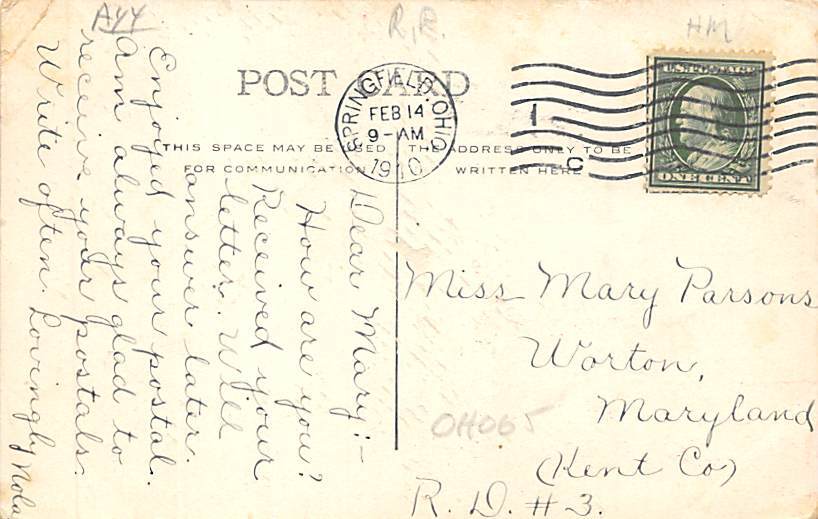 A44
R.P.
HM
POST CARD
SPRINGFIELD, OHIO
FEB 14
9-AM
1910
1
C
U.S. POSTAGE
ONE CENT
THIS SPACE MAY BE USED
FOR COMMUNICATION
THE ADDRESS ONLY TO BE
WRITTEN HERE
Dear Mary:-
How are you?
Received your
letter. Will
answer later.
Enjoyed your postal.
Am always glad to
receive your postals.
Write often. Lovingly Nola
Miss Mary Parsons
Worton,
Maryland
(Kent Co)
R.D. #3.
OH065